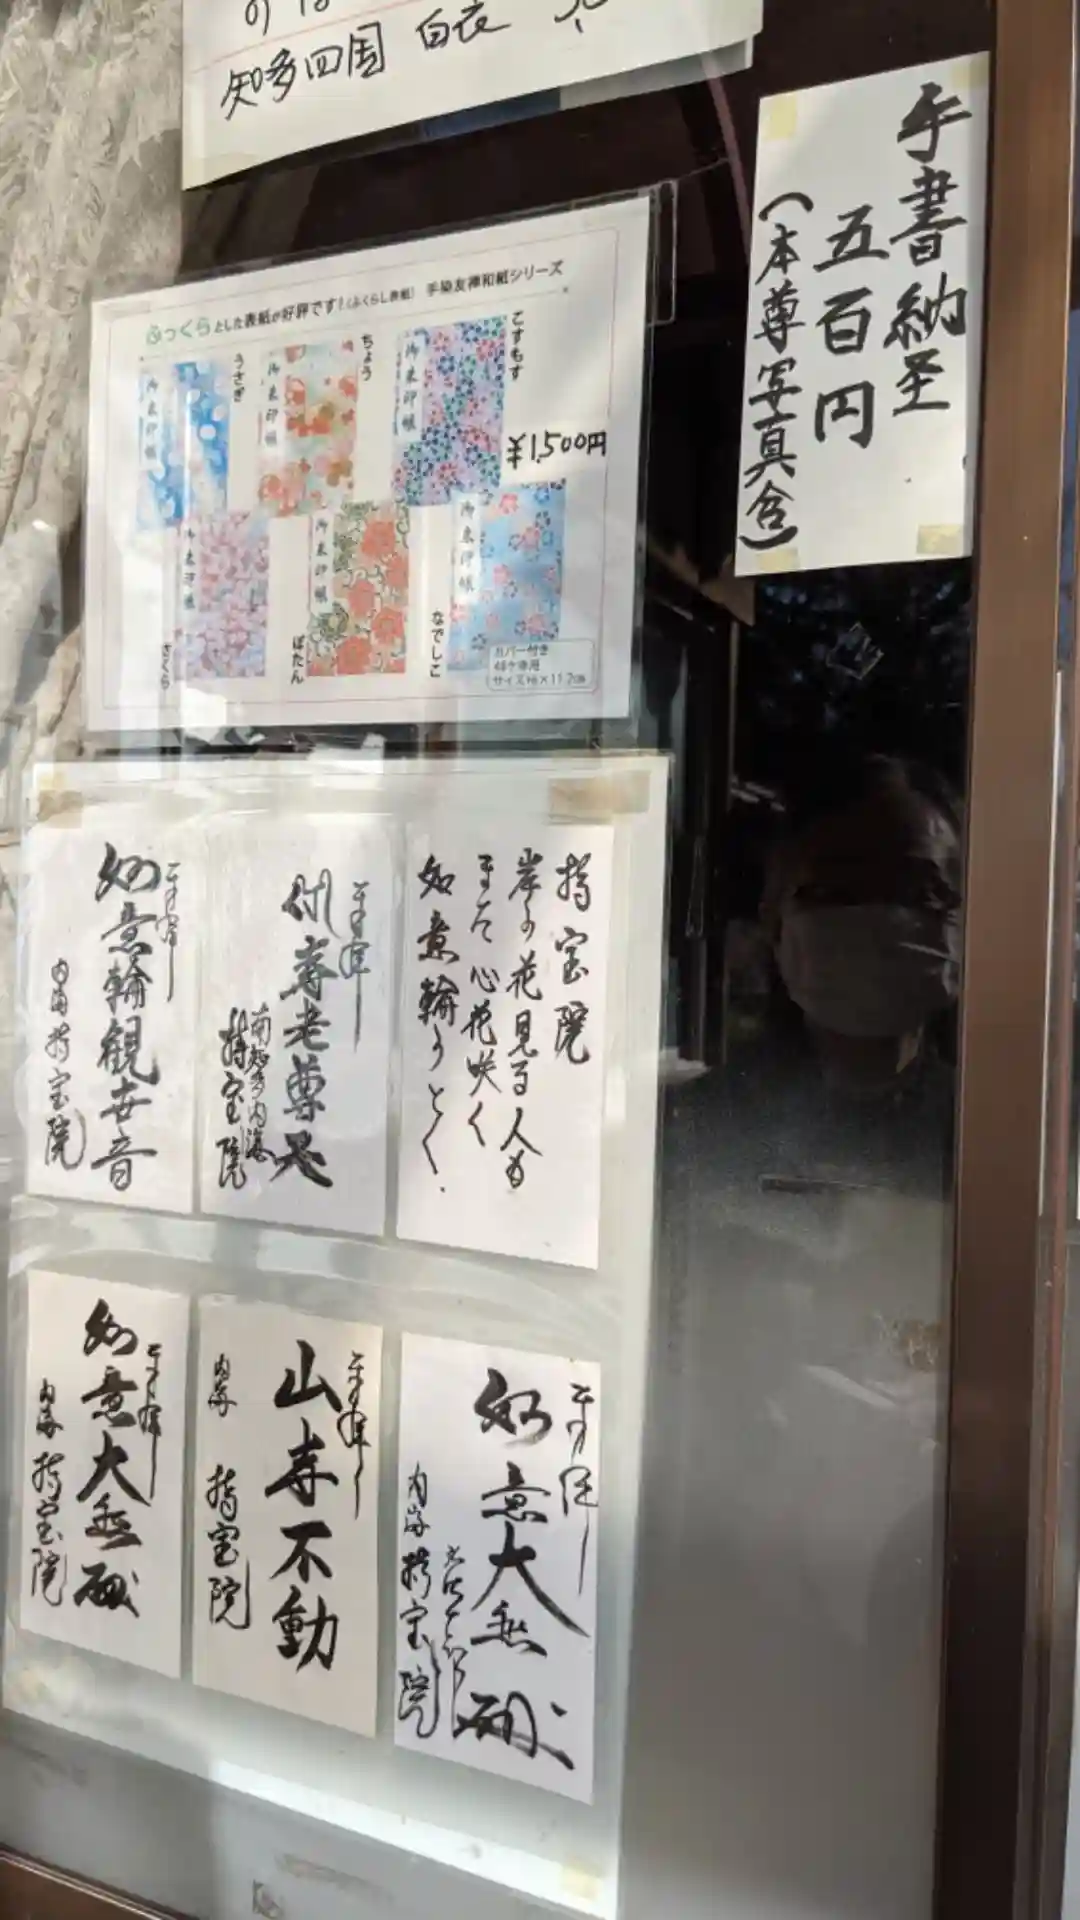 知多四国 白衣
手書納経
五百円
（本尊写真含）
ふっくらとした表紙が好評です！（ふくらし表紙） 手染友禅和紙シリーズ
うさぎ
ちょう
こすもす
御朱印帳
御朱印帳
御朱印帳
¥1,500円
御朱印帳
御朱印帳
御朱印帳
さくら
ぼたん
なでしこ
カバー付き
48ケ寺用
サイズ16×11.2cm
持宝院
岸の花見る人も
また心花咲く
如意輪のとく
奉拝
南知多内海
持宝院
奉拝
如意輪観世音
内海 持宝院
奉拝
如意大無
内海 持宝院
奉拝
山寿不動
内海 持宝院
奉拝
如意大無
内海 持宝院